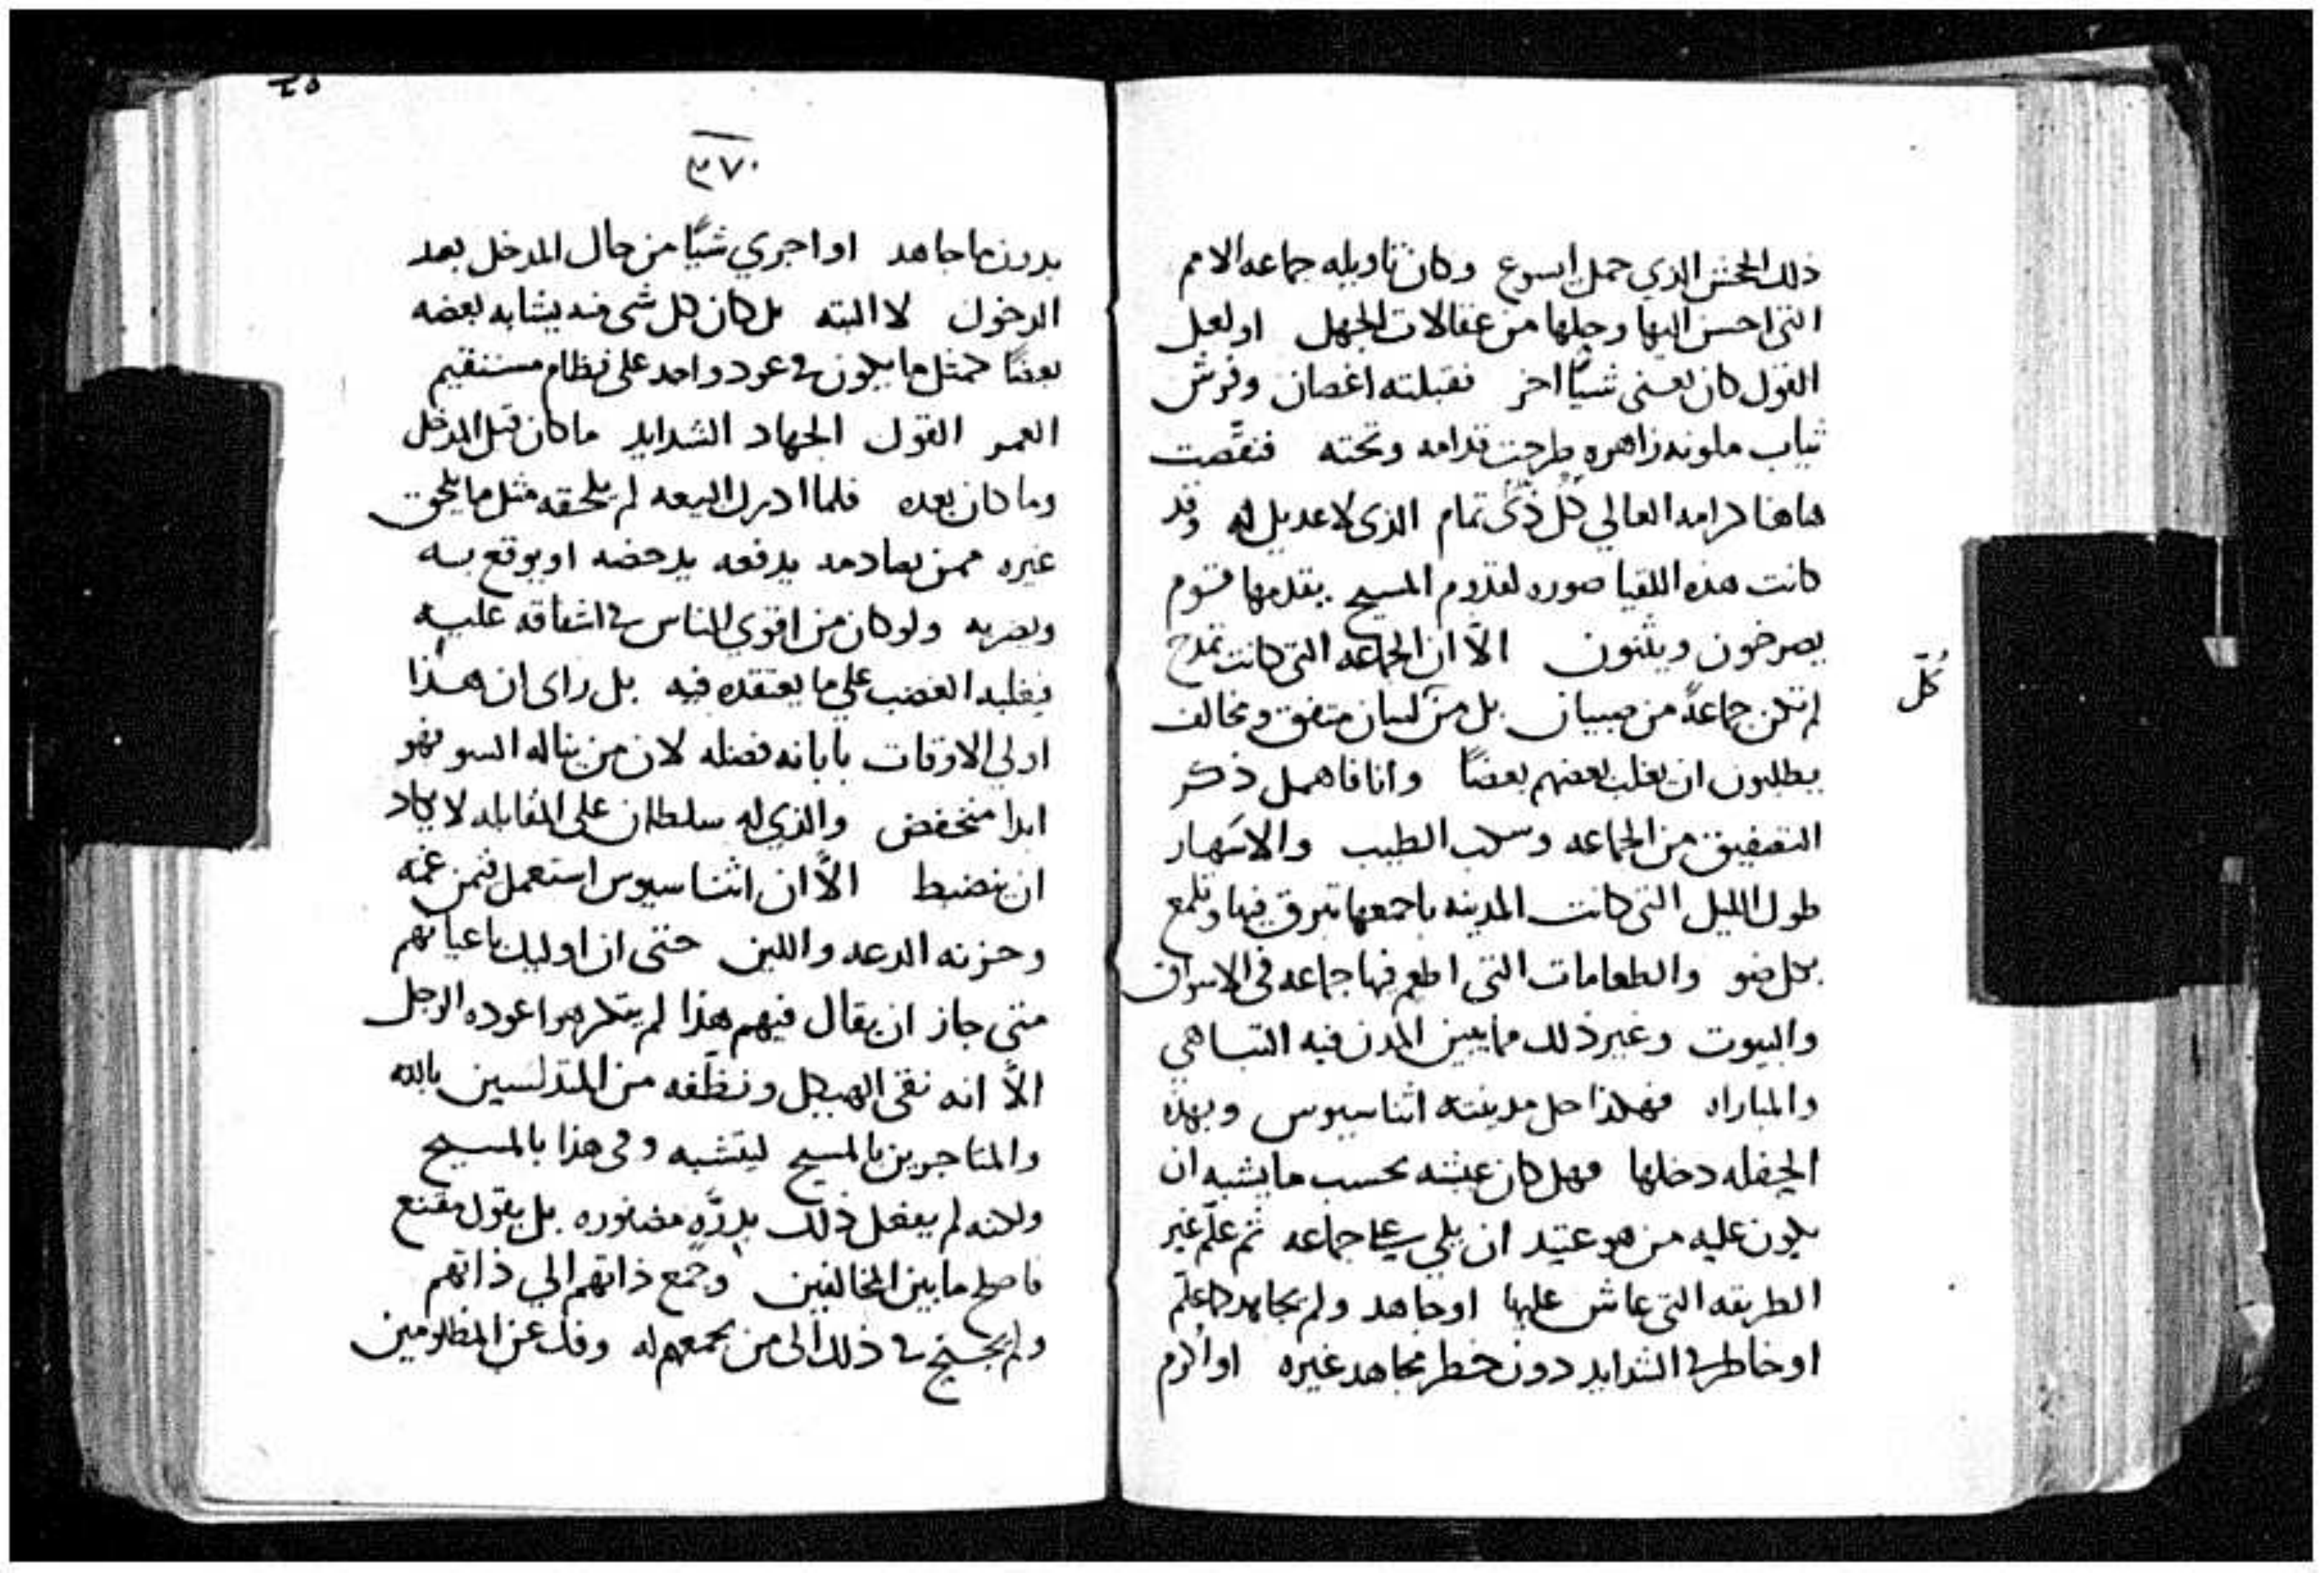 ذلك الجحش الذي حمل ايسوع وكان تاويله جماعه الامم
التي احسن اليها وحلها من عقالات الجهل او لعل
القول كان يعني شيًا اخر فقبلته اغصان وفرش
ثياب ملونه زاهره طرحت قدامه وتحته فنقَّصت
هاهنا كرامه العالي كل ذى تمام الذى لا عديل له وقد
كانت هذه اللقيا صوره لقدوم المسيح يقدمها قسوم
يصرخون ويثنون الاَّ ان الجماعه التي كانت تمدح
لم تكن جماعةً من صبيان بل من كل لسان متفق ومخالف
يطلبون ان يغلب بعضهم بعضًا وانا فاهمل ذكر
التصفيق من الجماعه وسكب الطيب والاسهار
طول الليل التي كانت المدينه باجمعها تبرق فيها وتلمع
بكل ضو والطعامات التي اطعم فيها جماعه في الاسواق
والبيوت وغير ذلك مما يبين المدن فيه التباهي
والمباراه فهكذا حل مدينته اثناسيوس وبهذه
الحفله دخلها فهل كان عيشه بحسب ما يشبه ان
يكون عليه من هو عتيد ان يلي رعاية جماعه ثم علّم غير
الطريقه التي عاش عليها او جاهد ولم يجاهد كما علّم
او خاطر في الشدايد دون خطر مجاهد غيره او اكرم
كُلّ
٣٧٠
بدون ما جاهد او اجري شيًا من حال المدخل بعد
الدخول لا البته بل كان كل شي فيه يشابه بعضه
بعضًا كمثل ما يكون في عود واحد على نظام مستقيم
العمر القول الجهاد الشدايد ما كان قبل المدخل
وما كان بعده فلما ادرك البيعه لم يلحقه مثل ما يلحق
غيره ممن يصادمه يدفعه يدحضه او يوقع به
ويضربه ولو كان من اقوي الناس في اشفاقه عليه
فيغلبه الغضب علي ما يعتقده فيه بل راى ان هذا
اولي الاوقات بابانه فضله لان من يناله السو فهو
ابدا منخفض والذي له سلطان على المقابله لا يكاد
ان ينضبط الاَّ ان اثناسيوس استعمل فيمن غمّه
وحزنه الدعه واللين حتى ان اوليك باعيانهم
متي جاز ان يقال فيهم هذا لم يتكرهوا عوده الرجل
الاَّ انه نقى الهيكل ونظّفه من المتدلسين بالله
والمتاجرين بالمسيح ليتشبه وفى هذا بالمسيح
ولكنه لم يفعل ذلك بدرَّهٍ مضفوره بل بقول مقنع
فاصلح ما بين المخالفين وجمع ذاتهم الي ذاتهم
ولم يحتج في ذلك الى من يجمعهم له وفك عن المظلومين